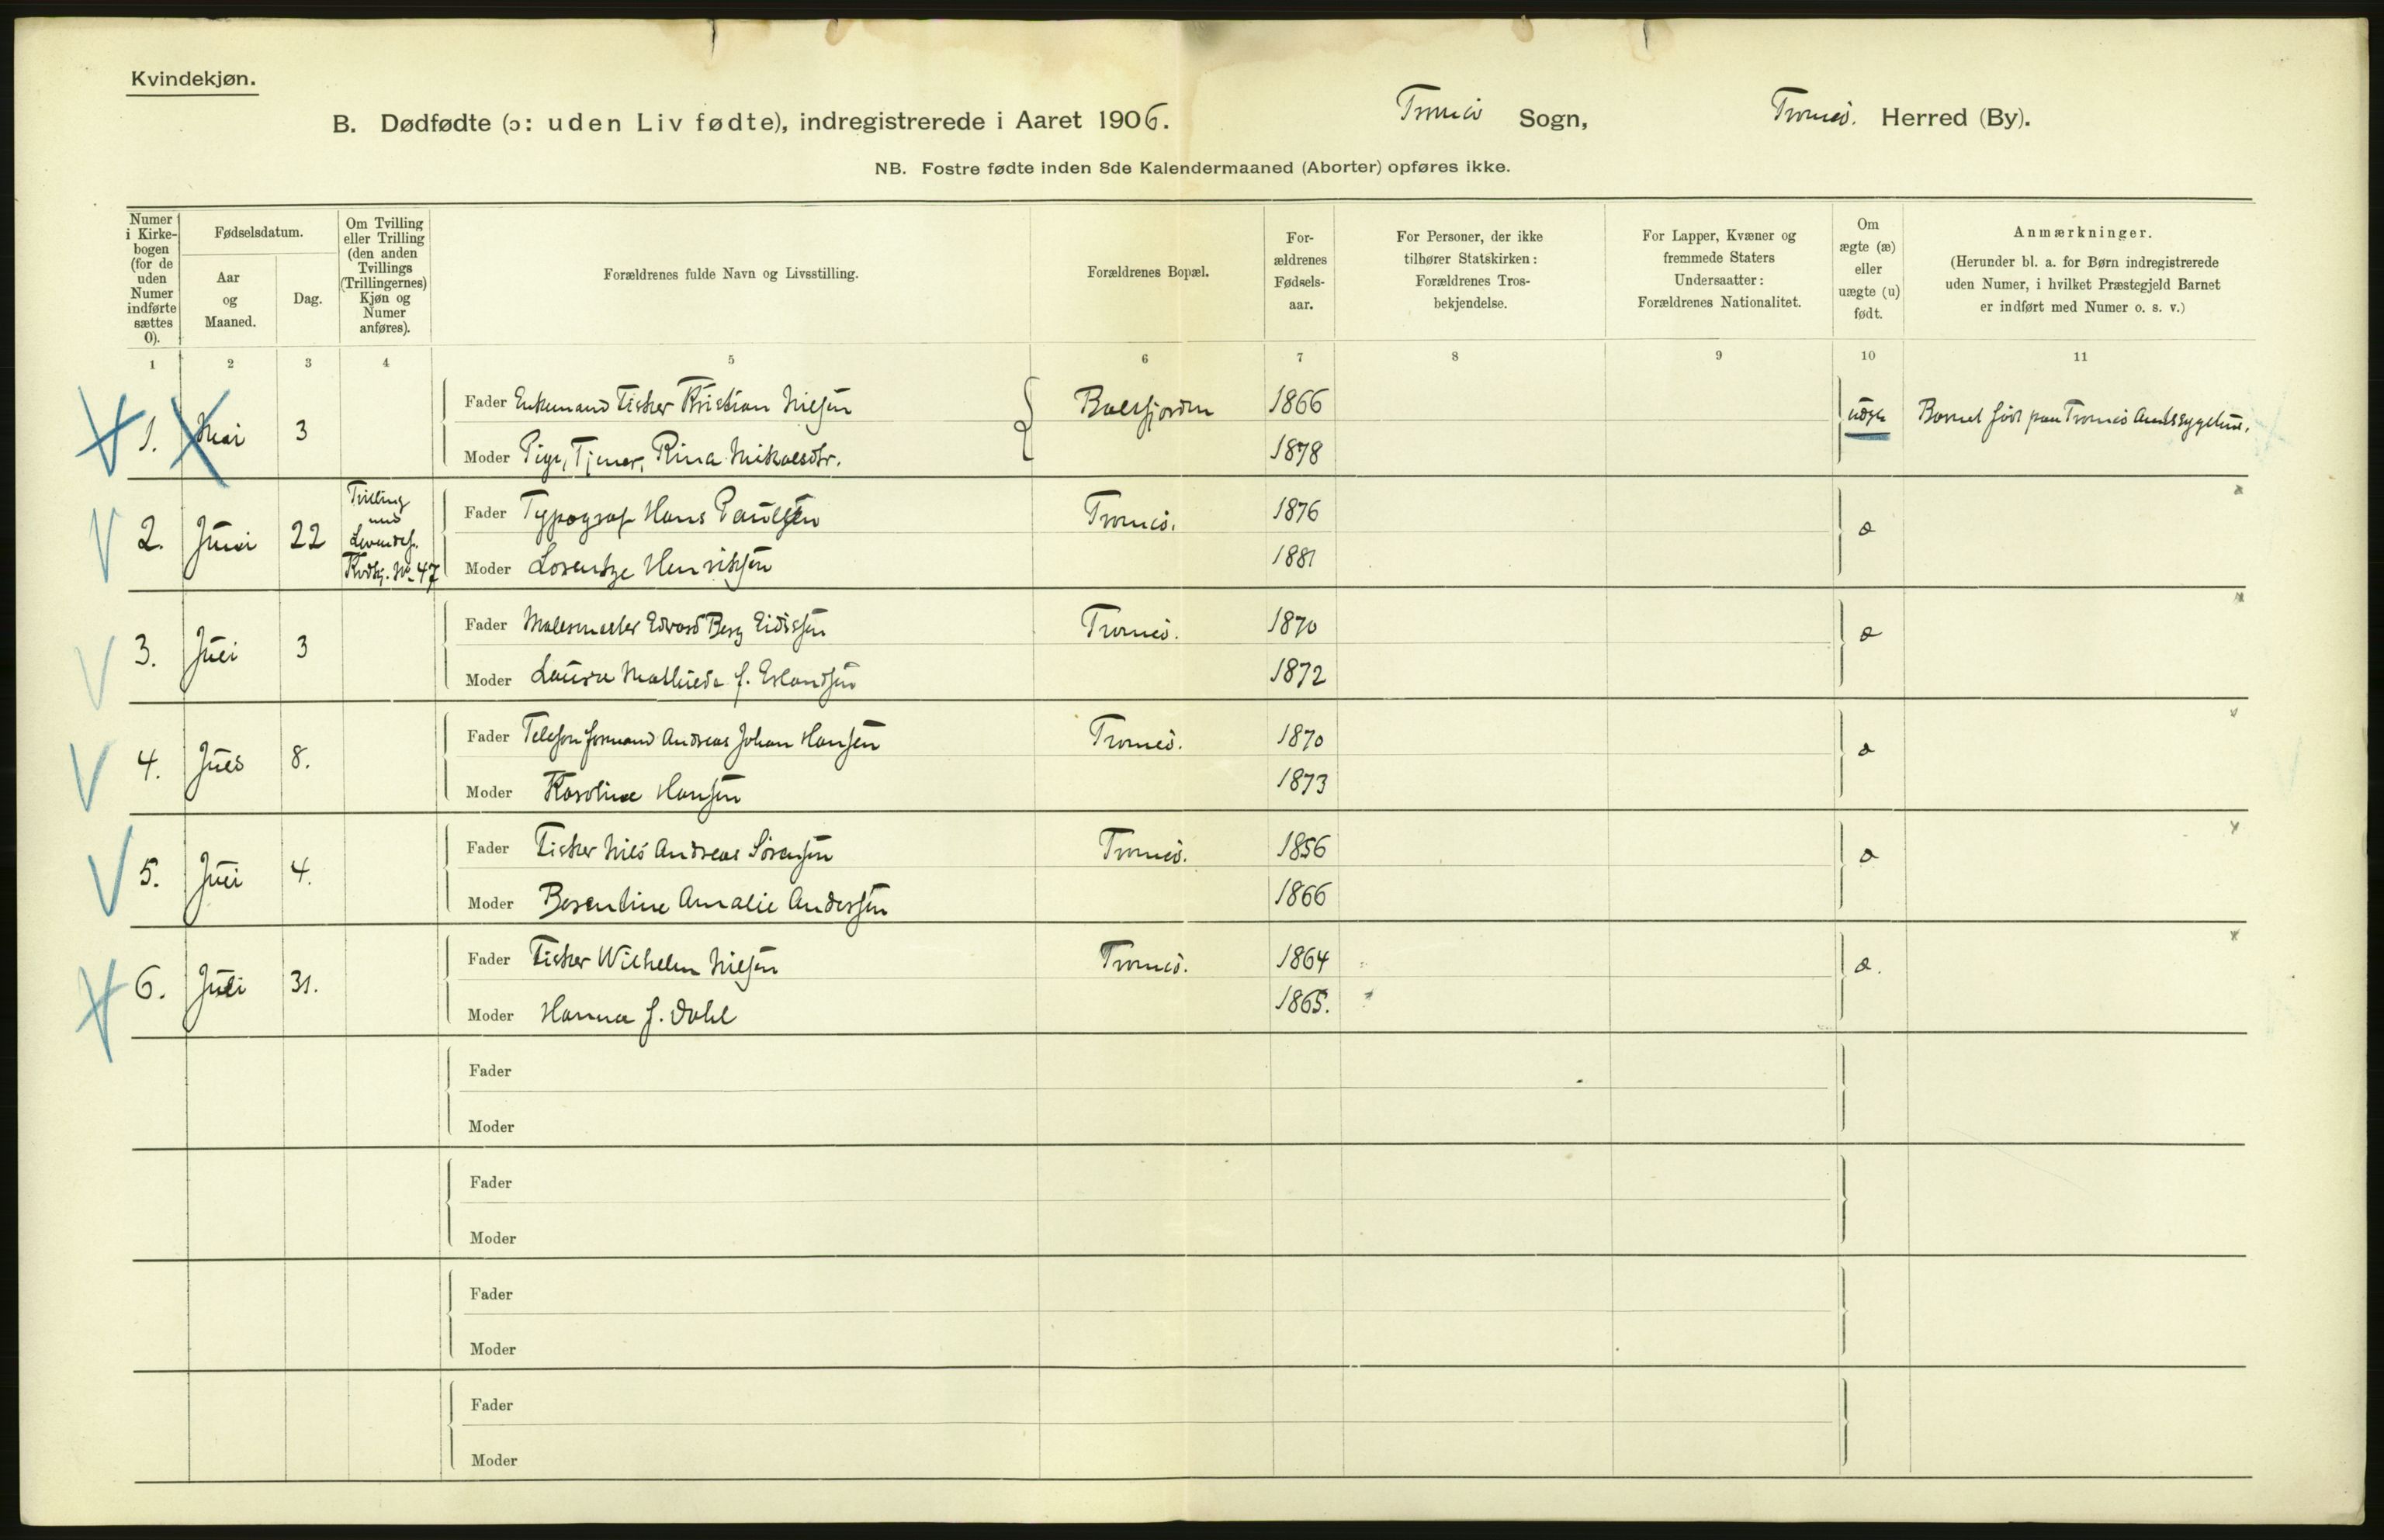 Kvindekjøn.
B. Dødfødte (ɔ: uden Liv fødte), indregistrerede i Aaret 1906. Tromsö Sogn, Tromsö. Herred (By).
NB. Fostre fødte inden 8de Kalendermaaned (Aborter) opføres ikke.
Numer
i Kirke-
bogen
(for de
uden
Numer
indførte
sættes
0).
Fødselsdatum.
Aar
og
Maaned.
Dag.
Om Tvilling
eller Trilling
(den anden
Tvillings
(Trillingernes)
Kjøn og
Numer
anføres).
Forældrenes fulde Navn og Livsstilling.
Forældrenes Bopæl.
For-
ældrenes
Fødsels-
aar.
For Personer, der ikke
tilhører Statskirken:
Forældrenes Tros-
bekjendelse.
For Lapper, Kvæner og
fremmede Staters
Undersaatter:
Forældrenes Nationalitet.
Om
ægte (æ)
eller
uægte (u)
født.
Anmærkninger.
(Herunder bl. a. for Børn indregistrerede
uden Numer, i hvilket Præstegjeld Barnet
er indført med Numer o. s. v.)
1 2 3 4 5 6 7 8 9 10 11
Fader Enkemand Fisker Kristian Nilsen Balsfjorden 1866
1. Mai 3 uægte Barnet født paa Tromsö Amtssygehus.
Moder Pige, Tjener, Rina Mikalsdtr. 1878
Tvilling
med
Levendef.
Kvdkj. No 47
Fader Typograf Hans Paulsen Tromsö. 1876
2. Juni 22 æ
Moder Lorentze Henriksen 1881
Fader Malermester Edvard Berg Eidissen Tromsö. 1870
3. Juli 3 æ
Moder Laura Mathilde f. Erlandsen 1872
Fader Telefonformand Andreas Johan Hansen Tromsö. 1870
4. Juli 8. æ
Moder Karoline Hansen 1873
Fader Fisker Nils Andreas Sörensen Tromsö. 1856
5. Juli 4. æ
Moder Berentine Amalie Andersen 1866
Fader Fisker Wilhelm Nilsen Tromsö. 1864
6. Juli 31. æ.
Moder Hanna f. Dahl 1865.
Fader
Moder
Fader
Moder
Fader
Moder
Fader
Moder